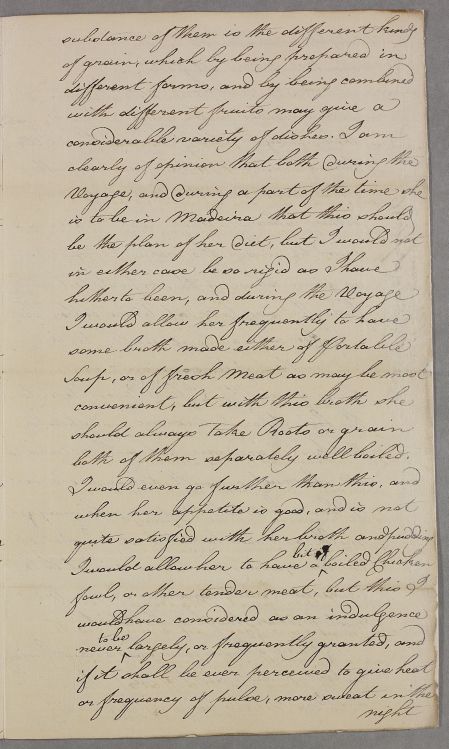 substance of them is the different kinds
of grain, which by being prepared in
different forms, and by being combined
with different fruits may give a
considerable variety of dishes. I am
clearly of opinion that both during the
Voyage, and during a part of the time she
is to be in Madeira that this should
be the plan of her diet, but I would not
in either case be so rigid as I have
hitherto been, and during the Voyage
I would allow her frequently to have
some broth made either of Portable
Soup, or of fresh Meat as may be most
convenient, but with this broth she
should always Take Roots or grain
both of them separately well boiled.
I would even go further than this, and
when her appetite is good, and is not
quite satisfied with her broth and pudding
I would allow her to have a bit of boiled Chicken
fowl, or other tender meat, but this I
would have considered as an indulgence
never to be largely, or frequently granted, and
if it shall be ever perceived to give heat
or frequency of pulse, more sweat in the
night